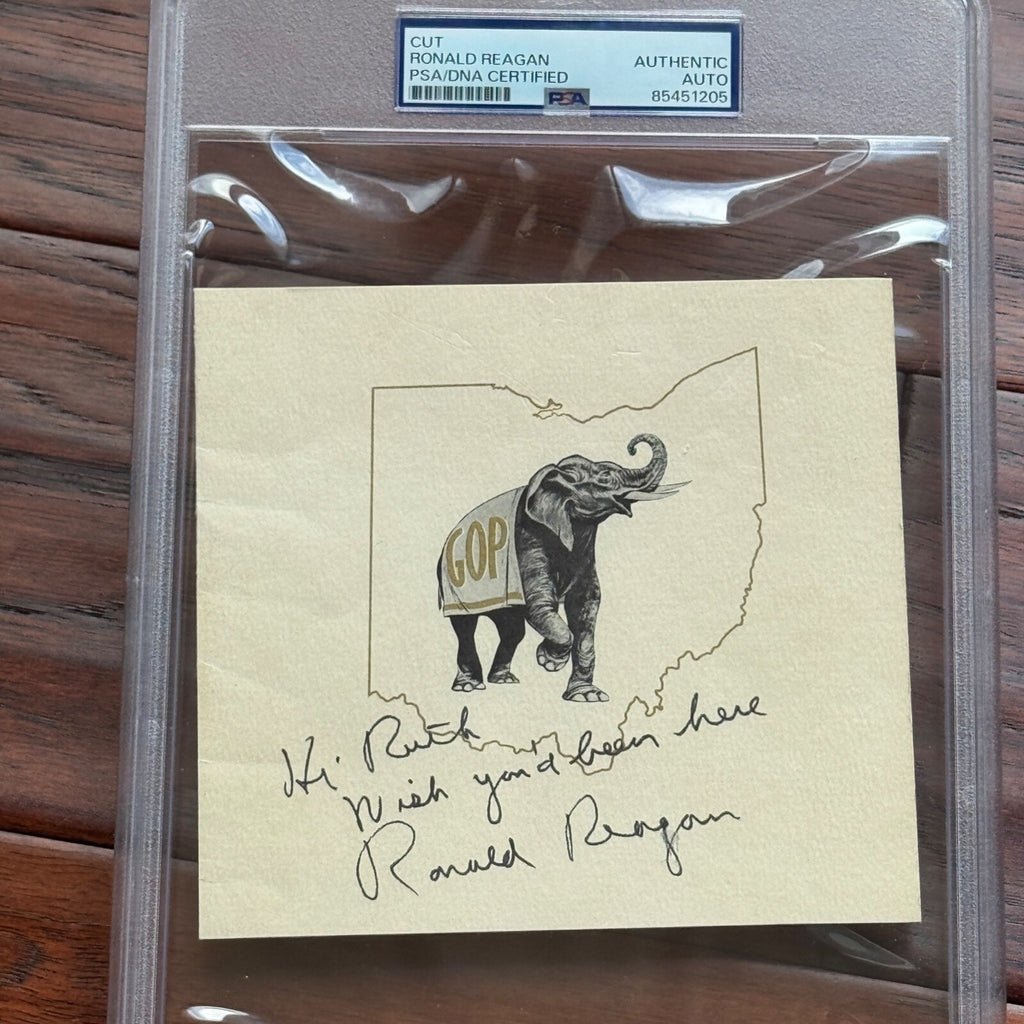 CUT
RONALD REAGAN
PSA/DNA CERTIFIED
AUTHENTIC
AUTO
85451205
PSA
GOP
Hi Ruth
Wish you'd been here
Ronald Reagan